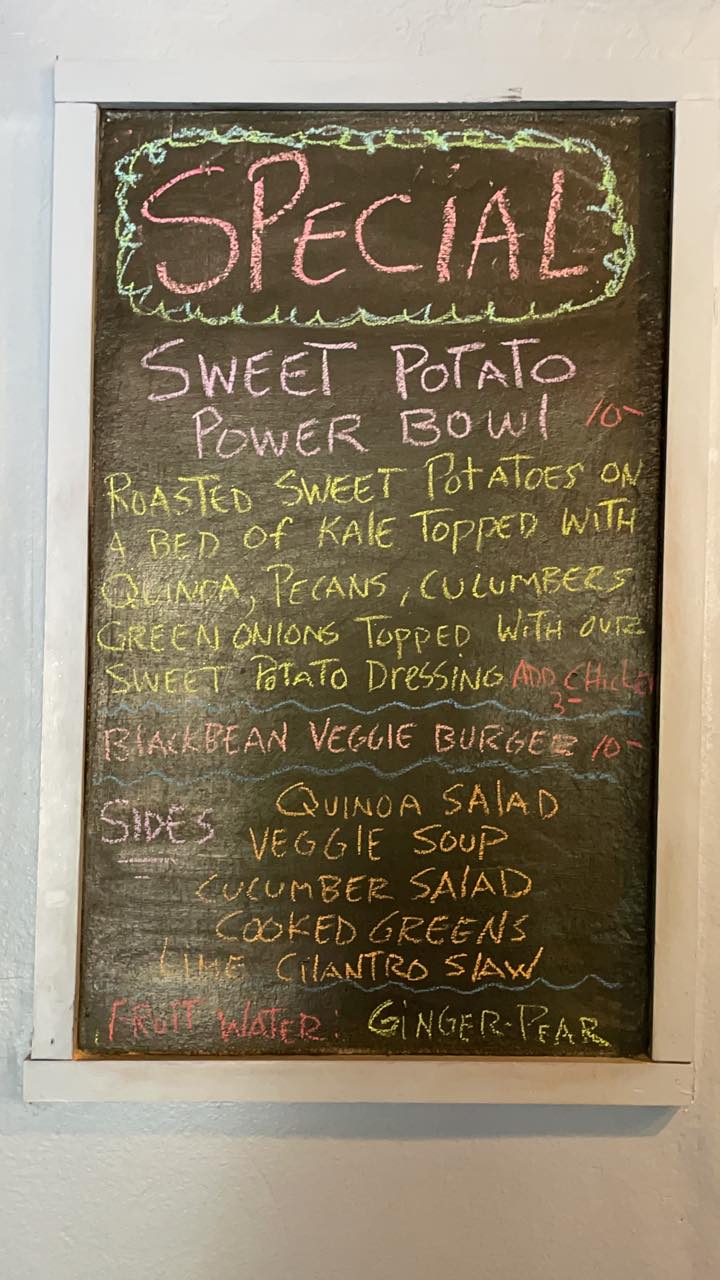 SPECIAL
SWEET POTATO
POWER BOWl 10-
ROASTED SWEET POTATOES ON
A BED Of KAlE TOPPED WITH
QUINOA, PECANS, CUCUMBERS
GREEN ONIONS TOPPED WITH OUR
SWEET POTATO DreSSING ADD CHICKEN
3-
BlACKBEAN VEGGIE BURGER 10-
SIDES QUINOA SAlAD
VEGGIE SOUP
CUCUMBER SAlAD
COOKED GREENS
LIME CIlANTRO SlAW
FRUIT WATER: GINGER-PEAR